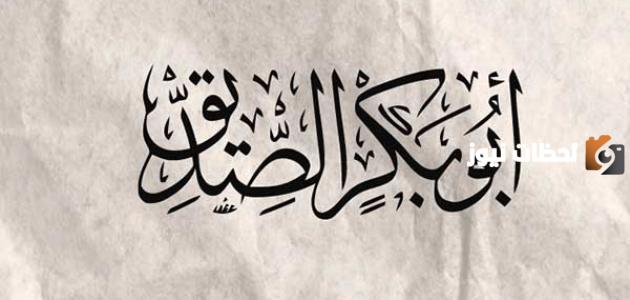 أَبُو بَكْرٍ الصِّدِّيق
لحظات نيوز